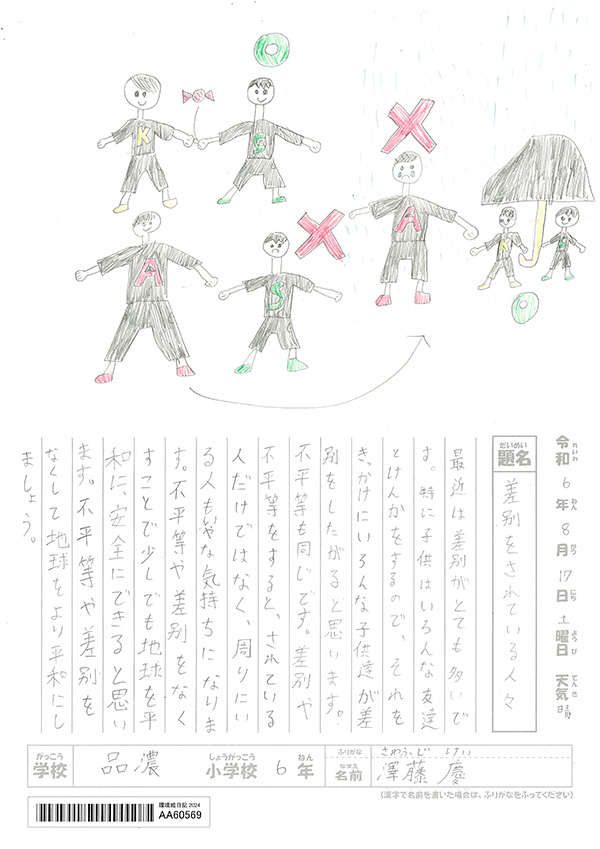 K
S
A
S
A
K
S
令和6年8月17日土曜日 天気 晴
れいわ ねん がつ にち ようび てんき
だいめい
題名
差別をされている人々
最近は差別がとても多いで
す。特に子供はいろんな友達
とけんかをするので、それを
きっかけにいろんな子供達が差
別をしたがると思います。
不平等も同じです。差別や
不平等をすると、されている
人だけではなく、周りにい
る人もいやな気持ちになりま
す。不平等や差別をなく
すことで少しでも地球を平
和に、安全にできると思い
ます。不平等や差別を
なくして地球をより平和にし
ましょう。
がっこう しょうがっこう ねん ふりがな さわふじ けい
学校 品濃 小学校 6年 なまえ 名前 澤藤 慶
(漢字で名前を書いた場合は、ふりがなをふってください)
環境絵日記 2024
AA60569